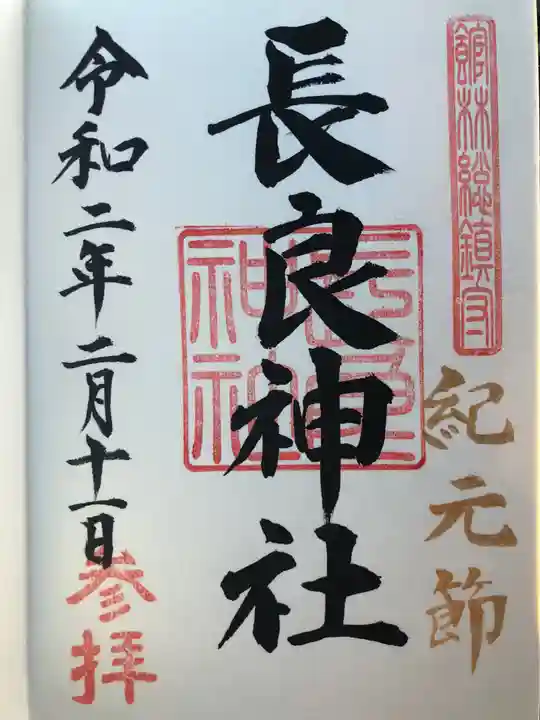 館林総鎮守
紀元節
長良神社
令和二年二月十一日
参拝